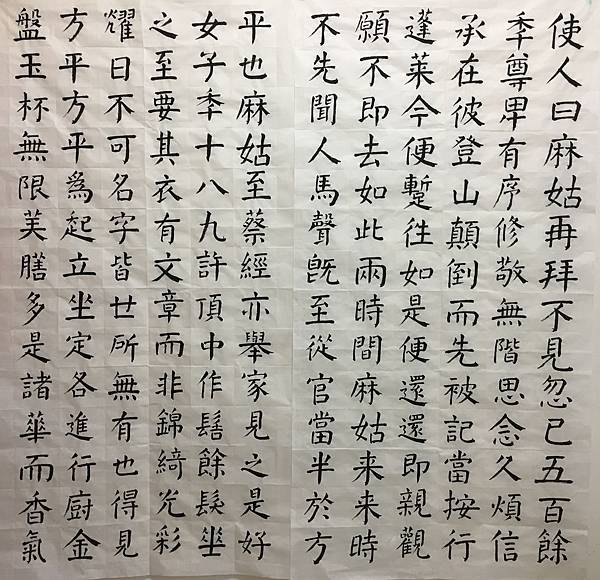 使人曰麻姑再拜不見忽已五百餘
秊尊卑有序修敬無階思念久煩信
承在彼登山顛倒而先被記當按行
蓬萊今便蹔往如是便還還即親觀
願不即去如此兩時間麻姑来来時
不先聞人馬聲既至從官當半於方
平也麻姑至蔡經亦舉家見之是好
女子秊十八九許頂中作髻餘髮垂
之至要其衣有文章而非錦綺光彩
耀日不可名字皆世所無有也得見
方平方平爲起立坐定各進行廚金
盤玉杯無限美膳多是諸華而香氣